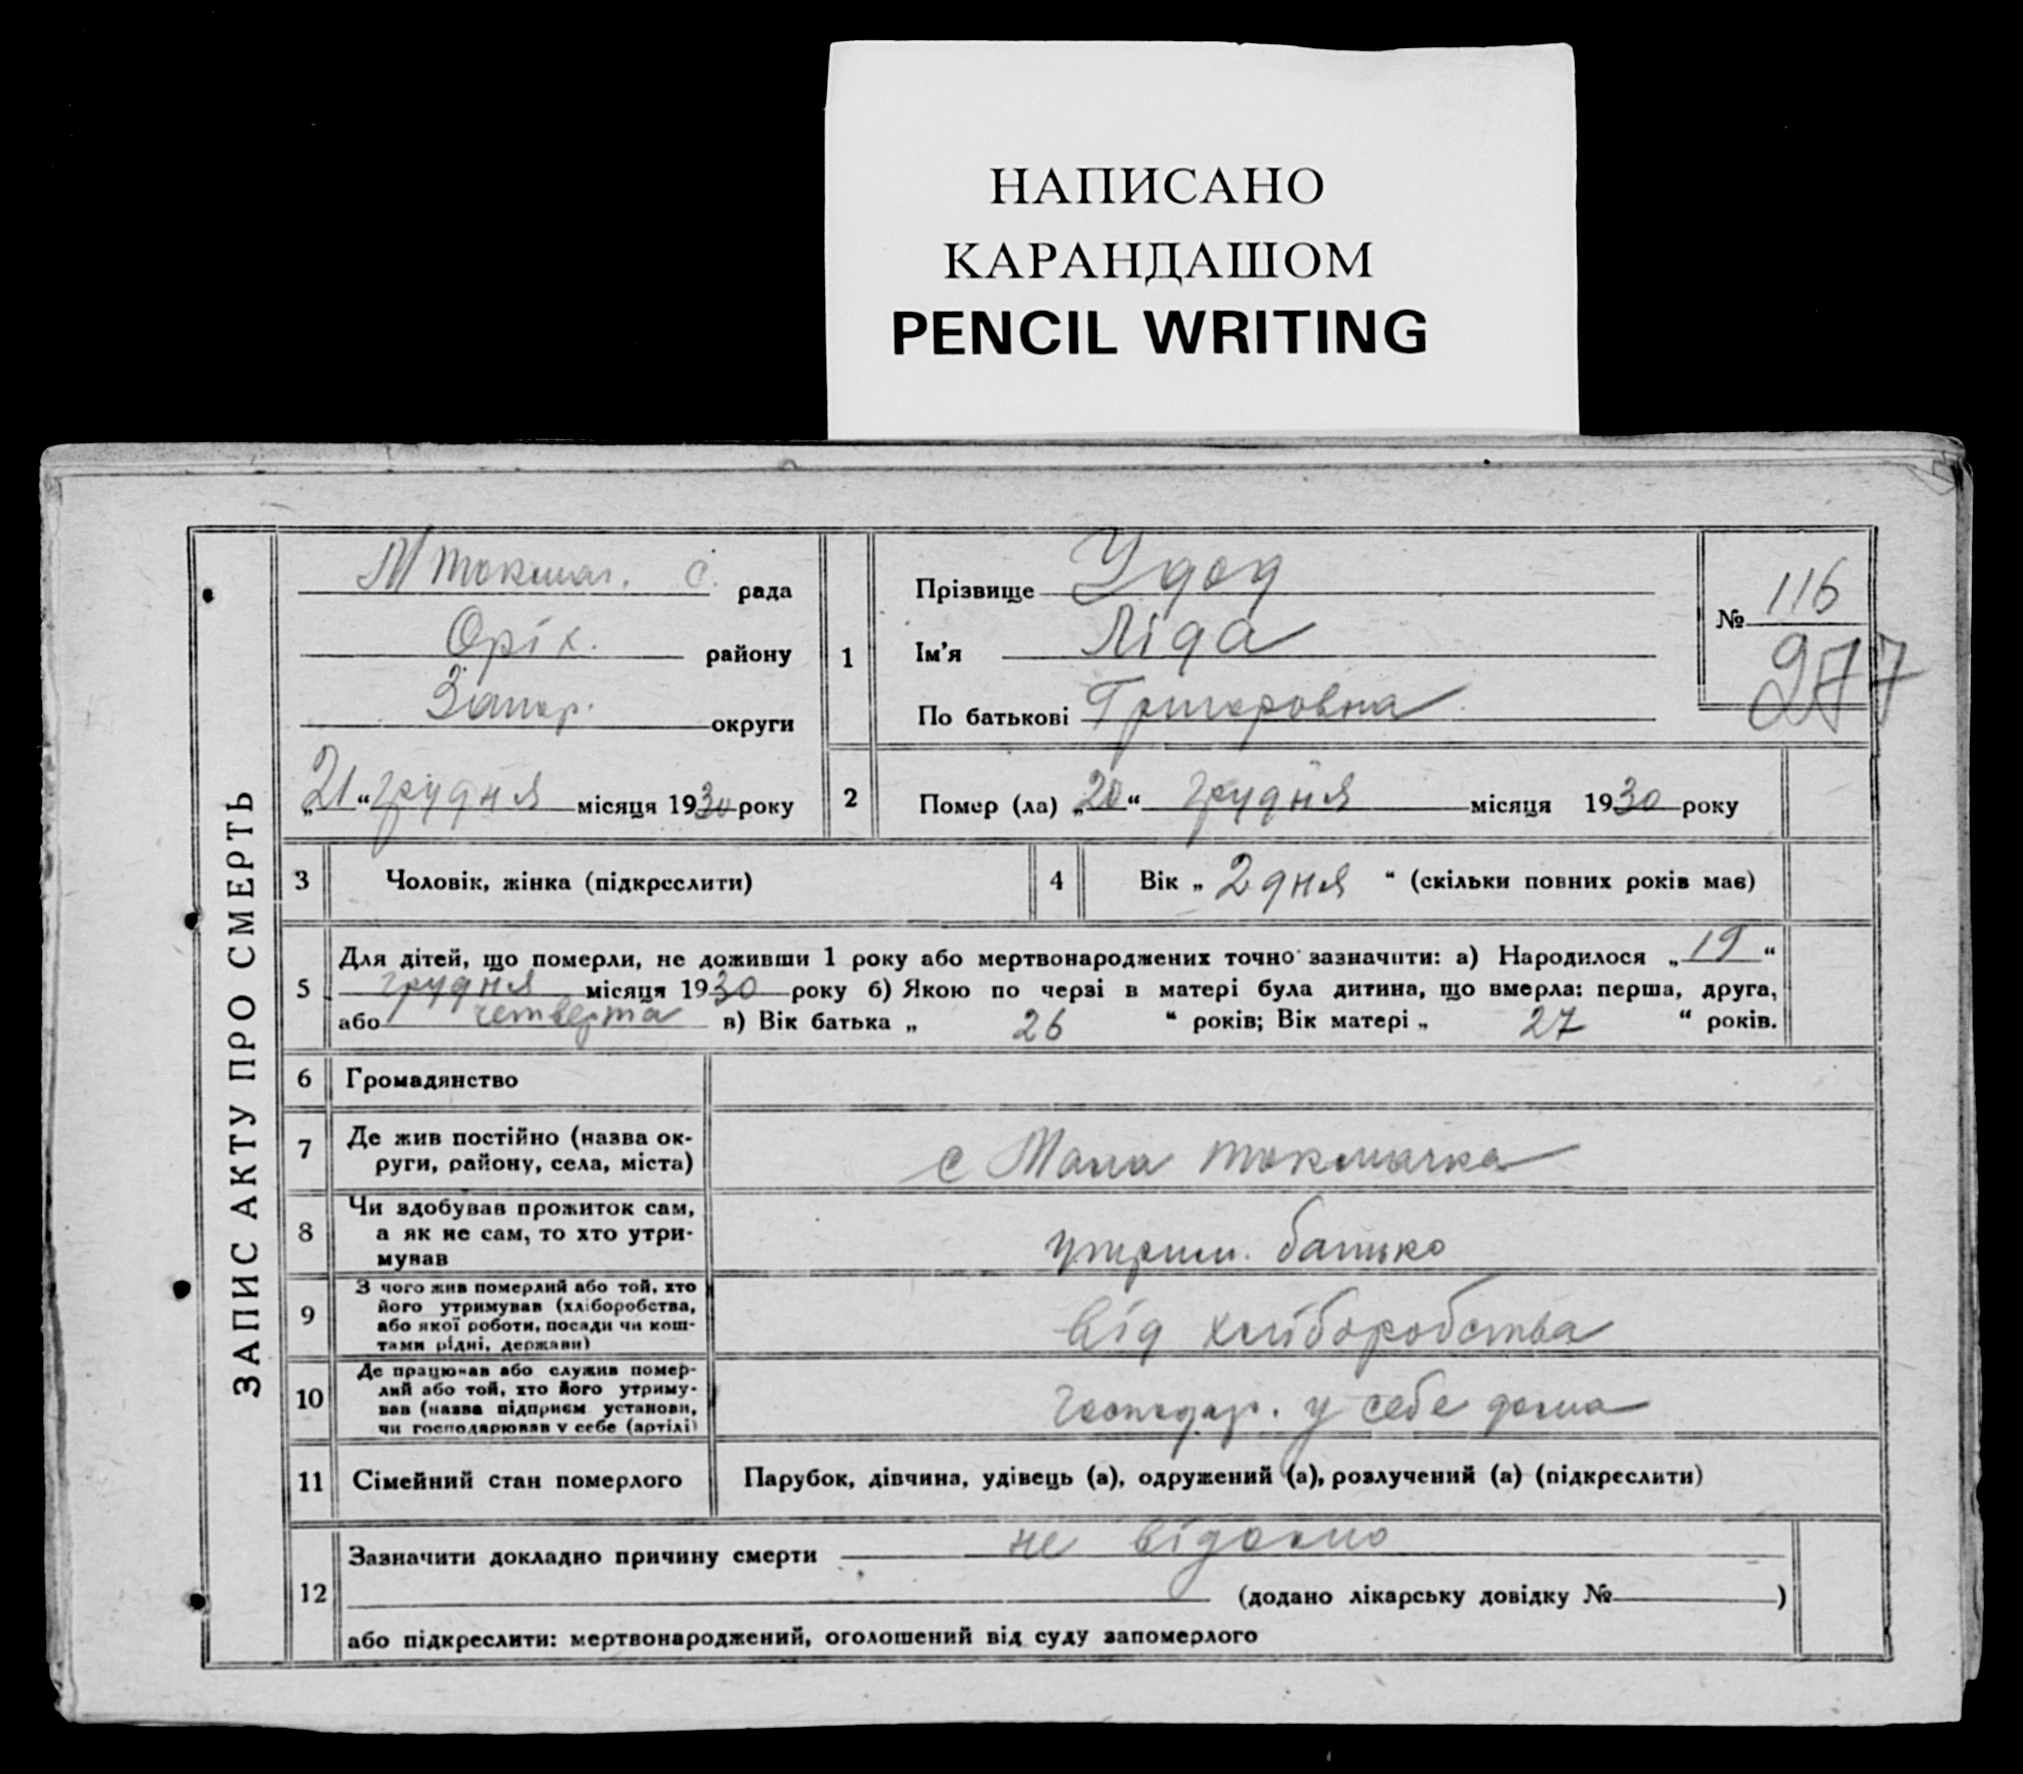 НАПИСАНО
КАРАНДАШОМ
PENCIL WRITING
ЗАПИС АКТУ ПРО СМЕРТЬ
М токмач. с. рада
Оріх. району
Запор. округи
„21“ грудня місяця 1930 року
1
Прізвище Удод
Ім'я Ліда
По батькові Григоровна
№ 116
277
2 Помер (ла) „20“ грудня місяця 1930 року
3 Чоловік, жінка (підкреслити)
4 Вік „2 дня“ (скільки повних років має)
5 Для дітей, що померли, не доживши 1 року або мертвонароджених точно зазначити: а) Народилося „19“
грудня місяця 1930 року б) Якою по черзі в матері була дитина, що вмерла: перша, друга,
або четверта в) Вік батька „26“ років; Вік матері „27“ років.
6 Громадянство
7 Де жив постійно (назва ок-
руги, району, села, міста)
с Мала токмачка
8 Чи здобував прожиток сам,
а як не сам, то хто утри-
мував
утрим. батько
9 З чого жив померлий або той, хто
його утримував (хліборобства,
або якої роботи, посади чи кош-
тами рідні, держави)
від хліборобства
10 Де працював або служив помер-
лий або той, хто його утриму-
вав (назва підприєм установи,
чи господарював у себе (артілі)
господар. у себе дома
11 Сімейний стан померлого
Парубок, дівчина, удівець (а), одружений (а), розлучений (а) (підкреслити)
12 Зазначити докладно причину смерти не відомо
(додано лікарську довідку №)
або підкреслити: мертвонароджений, оголошений від суду запомерлого